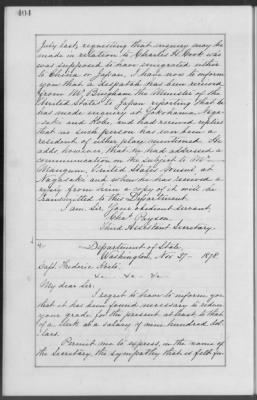 404
July last, requesting that inquiry may be
made in relation to Charles H. Cook who
was supposed to have emigrated either
to China or Japan, I have now to inform
you that a despatch has been received
from Mr Bingham the Minister of the
United States to Japan reporting that he
has made enquiry at Yokohama, Naga-
saki and Kobe, and had received replies
that no such person has ever been a
resident of either place mentioned. He
adds, however, that he had addressed a
communication on the subject to Mr
Mangum, United States Consul at
Nagasaki and when he has received a
reply from him a copy of it will be
transmitted to this Department.
I am Sir, Your obedient servant,
Chas Payson
Third Assistant Secretary.
Department of State
Washington, Nov 27- 1878.
Capt. Frederic
My dear Sir:
I regret to have to inform you
that it has been found necessary to reduce
your grade for the present at least to that
of a clerk at a salary of nine hundred dol-
lars.
Permit me to express, in the name of
the Secretary, the sympathy that is felt for